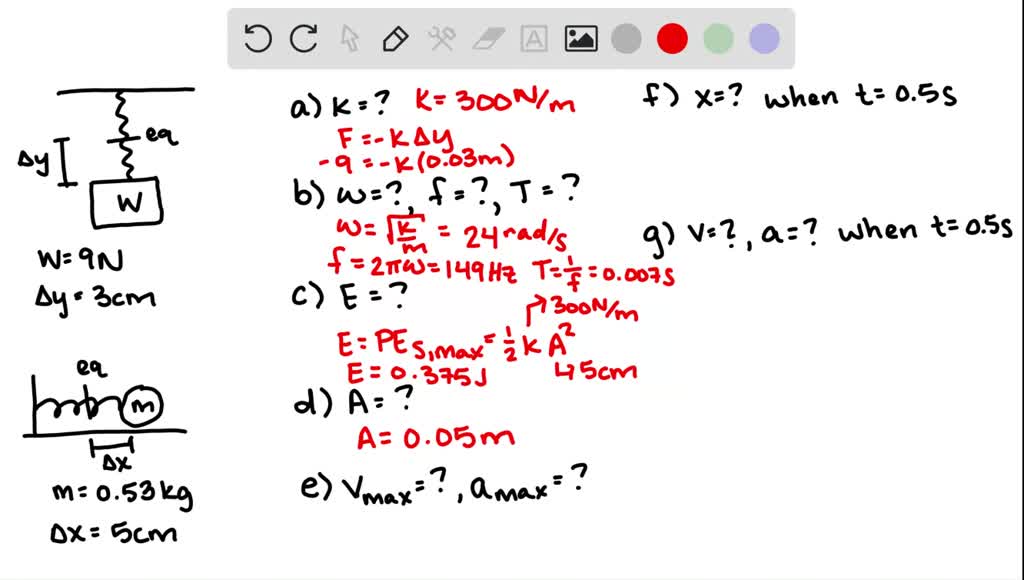 eq
Δy
W
W=9N
Δy=3cm
eq
m
Δx
m=0.53kg
Δx=5cm
a) K=? K=300N/m
F=-KΔy
-9=-K(0.03m)
b) ω=?, f=?, T=?
ω=√k/m = 24 rad/s
f=2πω=149Hz T=1/f=0.007s
c) E=?
→300N/m
E=PE s,max=1/2 k A²
E=0.375J ↳5cm
d) A=?
A=0.05m
e) Vmax=?, amax=?
f) x=? when t=0.5s
g) v=?, a=? when t=0.5s
A